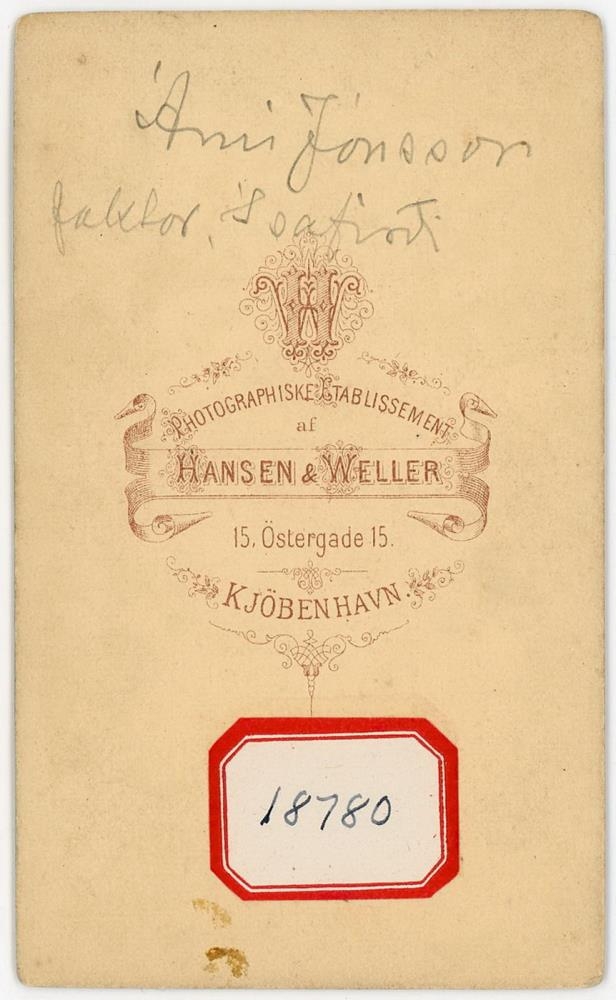 Árni Jónsson
faktor, Ísafirði
HW
PHOTOGRAPHISKE ETABLISSEMENT
af
HANSEN & WELLER
15, Östergade 15.
KJÖBENHAVN.
18780